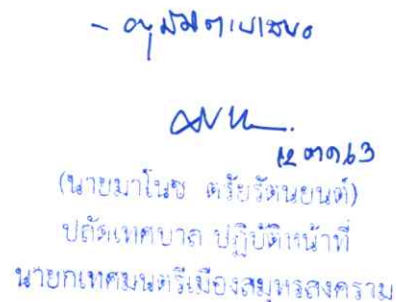 - อนุมัติตามเสนอ
12 ตค 63
(นายมาโนช ตรัยรัตนยนต์)
ปลัดเทศบาล ปฏิบัติหน้าที่
นายกเทศมนตรีเมืองสมุทรสงคราม